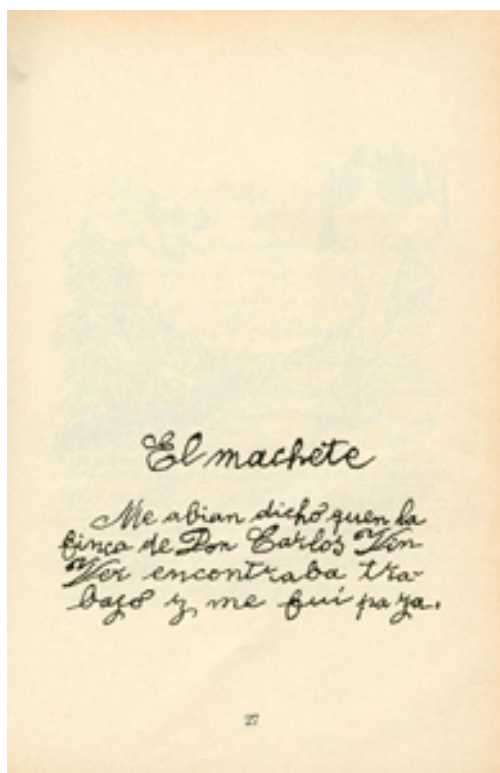 El machete
Me abian dicho quen la
finca de Don Carlos Vin
Ver encontraba tra-
bajo y me fui pa ya.
27